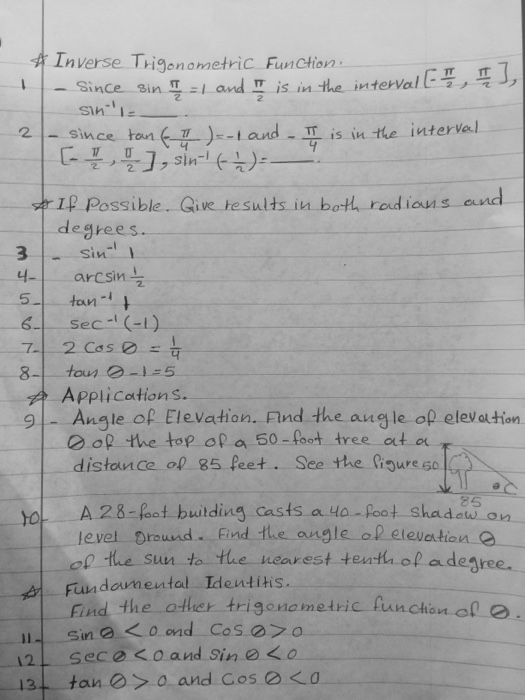 ☆ Inverse Trigonometric Function.
1 - Since sin π/2 = 1 and π/2 is in the interval [-π/2, π/2],
sin⁻¹ 1 = ____.
2 - since tan (-π/4) = -1 and - π/4 is in the interval
[-π/2, π/2], sin⁻¹ (-1/2) = ____.
☆ If Possible. Give results in both radians and
degrees.
3 - sin⁻¹ 1
4- arcsin 1/2
5- tan⁻¹ 1
6- sec⁻¹ (-1)
7- 2 Cos θ = 1/4
8- tan θ - 1 = 5
☆ Applications.
9 - Angle of Elevation. Find the angle of elevation
θ of the top of a 50-foot tree at a
distance of 85 feet. See the figure 50
85
10- A 28-foot building casts a 40-foot shadow on
level Ground. Find the angle of elevation θ
of the sun to the nearest tenth of a degree.
☆ Fundamental Identitis.
Find the other trigonometric function of θ.
11- sin θ < 0 and Cos θ > 0
12- sec θ < 0 and Sin θ < 0
13- tan θ > 0 and Cos θ < 0